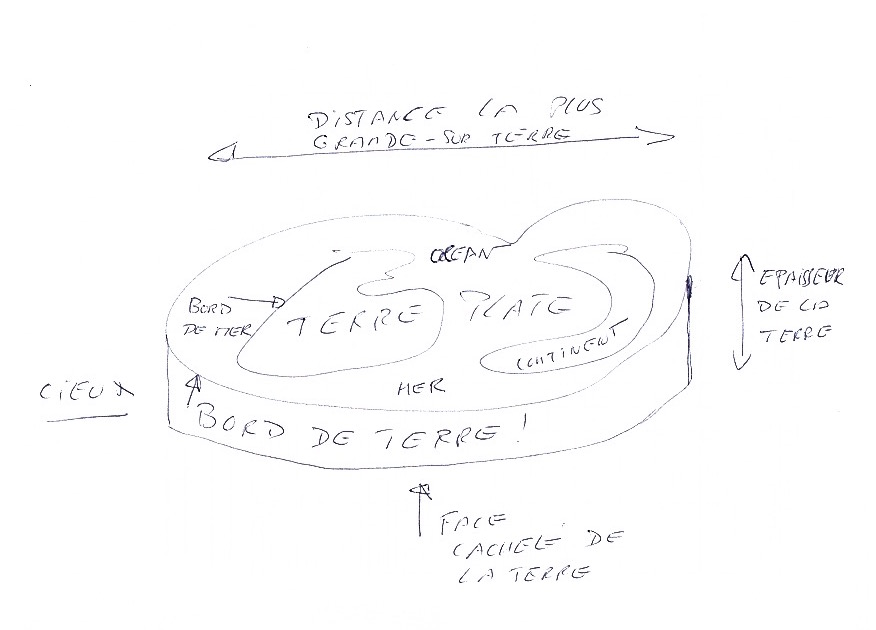 DISTANCE LA PLUS
GRANDE-SUR TERRE
OCEAN
BORD
DE MER
TERRE PLATE
CONTINENT
MER
EPAISSEUR
DE LA
TERRE
CIEUX
BORD DE TERRE!
FACE
CACHEE DE
LA TERRE